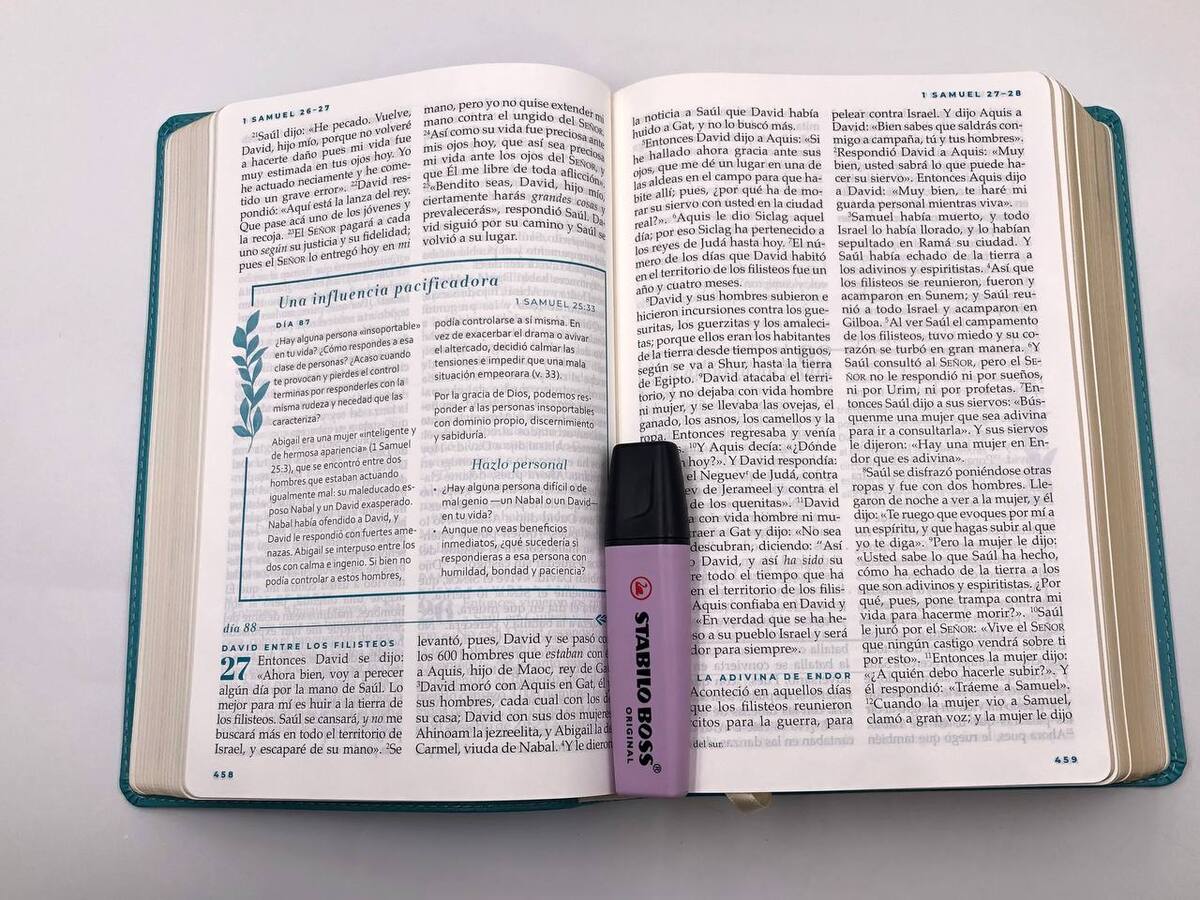 1 SAMUEL 26-27
²¹Saúl dijo: «He pecado. Vuelve,
David, hijo mío, porque no volveré
a hacerte daño pues mi vida fue
muy estimada en tus ojos hoy. Yo
he actuado neciamente y he come-
tido un grave error». ²²David res-
pondió: «Aquí está la lanza del rey.
Que pase acá uno de los jóvenes y
la recoja. ²³El SEÑOR pagará a cada
uno según su justicia y su fidelidad;
pues el SEÑOR lo entregó hoy en mi
mano, pero yo no quise extender mi
mano contra el ungido del SEÑOR.
²⁴Así como su vida fue preciosa ante
mis ojos hoy, que así sea preciosa
mi vida ante los ojos del SEÑOR, y
que Él me libre de toda aflicción».
²⁵«Bendito seas, David, hijo mío,
ciertamente harás grandes cosas y
prevalecerás», respondió Saúl. Da-
vid siguió por su camino y Saúl se
volvió a su lugar.
Una influencia pacificadora
1 SAMUEL 25:33
DÍA 87
¿Hay alguna persona «insoportable»
en tu vida? ¿Cómo respondes a esa
clase de personas? ¿Acaso cuando
te provocan y pierdes el control
terminas por responderles con la
misma rudeza y necedad que las
caracteriza?
Abigail era una mujer «inteligente y
de hermosa apariencia» (1 Samuel
25:3), que se encontró entre dos
hombres que estaban actuando
igualmente mal: su maleducado es-
poso Nabal y un David exasperado.
Nabal había ofendido a David, y
David le respondió con fuertes ame-
nazas. Abigail se interpuso entre los
dos con calma e ingenio. Si bien no
podía controlar a estos hombres,
podía controlarse a sí misma. En
vez de exacerbar el drama o avivar
el altercado, decidió calmar las
tensiones e impedir que una mala
situación empeorara (v. 33).
Por la gracia de Dios, podemos res-
ponder a las personas insoportables
con dominio propio, discernimiento
y sabiduría.
Hazlo personal
• ¿Hay alguna persona difícil o de
mal genio —un Nabal o un David—
en tu vida?
• Aunque no veas beneficios
inmediatos, ¿qué sucedería si
respondieras a esa persona con
humildad, bondad y paciencia?
día 88
DAVID ENTRE LOS FILISTEOS
27 Entonces David se dijo:
«Ahora bien, voy a perecer
algún día por la mano de Saúl. Lo
mejor para mí es huir a la tierra de
los filisteos. Saúl se cansará, y no me
buscará más en todo el territorio de
Israel, y escaparé de su mano». ²Se
levantó, pues, David y se pasó con
los 600 hombres que estaban con él
a Aquis, hijo de Maoc, rey de Gat.
³David moró con Aquis en Gat, él y
sus hombres, cada cual con los de
su casa; David con sus dos mujeres
Ahinoam la jezreelita, y Abigail la de
Carmel, viuda de Nabal. ⁴Y le dieron
458
1 SAMUEL 27-28
la noticia a Saúl que David había
huido a Gat, y no lo buscó más.
⁵Entonces David dijo a Aquis: «Si
he hallado ahora gracia ante sus
ojos, que me dé un lugar en una de
las aldeas en el campo para que ha-
bite allí; pues, ¿por qué ha de mo-
rar su siervo con usted en la ciudad
real?». ⁶Aquis le dio Siclag aquel
día; por eso Siclag ha pertenecido a
los reyes de Judá hasta hoy. ⁷El nú-
mero de los días que David habitó
en el territorio de los filisteos fue un
año y cuatro meses.
⁸David y sus hombres subieron e
hicieron incursiones contra los gue-
suritas, los guerzitas y los amaleci-
tas; porque ellos eran los habitantes
de la tierra desde tiempos antiguos,
según se va a Shur, hasta la tierra
de Egipto. ⁹David atacaba el terri-
torio, y no dejaba con vida hombre
ni mujer, y se llevaba las ovejas, el
ganado, los asnos, los camellos y la
ropa. Entonces regresaba y venía
¹⁰Y Aquis decía: «¿Dónde
hoy?». Y David respondía:
el Neguev de Judá, contra
ev de Jerameel y contra el
de los quenitas». ¹¹David
a con vida hombre ni mu-
raer a Gat y dijo: «No sea
descubran, diciendo: "Así
David, y así ha sido su
re todo el tiempo que ha
en el territorio de los filis-
Aquis confiaba en David y
«En verdad que se ha he-
so a su pueblo Israel y será
dor para siempre».
LA ADIVINA DE ENDOR
Aconteció en aquellos días
que los filisteos reunieron
citos para la guerra, para
del sur.
pelear contra Israel. Y dijo Aquis a
David: «Bien sabes que saldrás con-
migo a campaña, tú y tus hombres».
²Respondió David a Aquis: «Muy
bien, usted sabrá lo que puede ha-
cer su siervo». Entonces Aquis dijo
a David: «Muy bien, te haré mi
guarda personal mientras viva».
³Samuel había muerto, y todo
Israel lo había llorado, y lo habían
sepultado en Ramá su ciudad. Y
Saúl había echado de la tierra a
los adivinos y espiritistas. ⁴Así que
los filisteos se reunieron, fueron y
acamparon en Sunem; y Saúl reu-
nió a todo Israel y acamparon en
Gilboa. ⁵Al ver Saúl el campamento
de los filisteos, tuvo miedo y su co-
razón se turbó en gran manera. ⁶Y
Saúl consultó al SEÑOR, pero el SE-
ÑOR no le respondió ni por sueños,
ni por Urim, ni por profetas. ⁷En-
tonces Saúl dijo a sus siervos: «Bús-
quenme una mujer que sea adivina
para ir a consultarla». Y sus siervos
le dijeron: «Hay una mujer en En-
dor que es adivina».
⁸Saúl se disfrazó poniéndose otras
ropas y fue con dos hombres. Lle-
garon de noche a ver a la mujer, y él
dijo: «Te ruego que evoques por mí a
un espíritu, y que hagas subir al que
yo te diga». ⁹Pero la mujer le dijo:
«Usted sabe lo que Saúl ha hecho,
cómo ha echado de la tierra a los
que son adivinos y espiritistas. ¿Por
qué, pues, pone trampa contra mi
vida para hacerme morir?». ¹⁰Saúl
le juró por el SEÑOR: «Vive el SEÑOR
que ningún castigo vendrá sobre ti
por esto». ¹¹Entonces la mujer dijo:
«¿A quién debo hacerle subir?». Y
él respondió: «Tráeme a Samuel».
¹²Cuando la mujer vio a Samuel,
clamó a gran voz; y la mujer le dijo
459
STABILO BOSS®
ORIGINAL